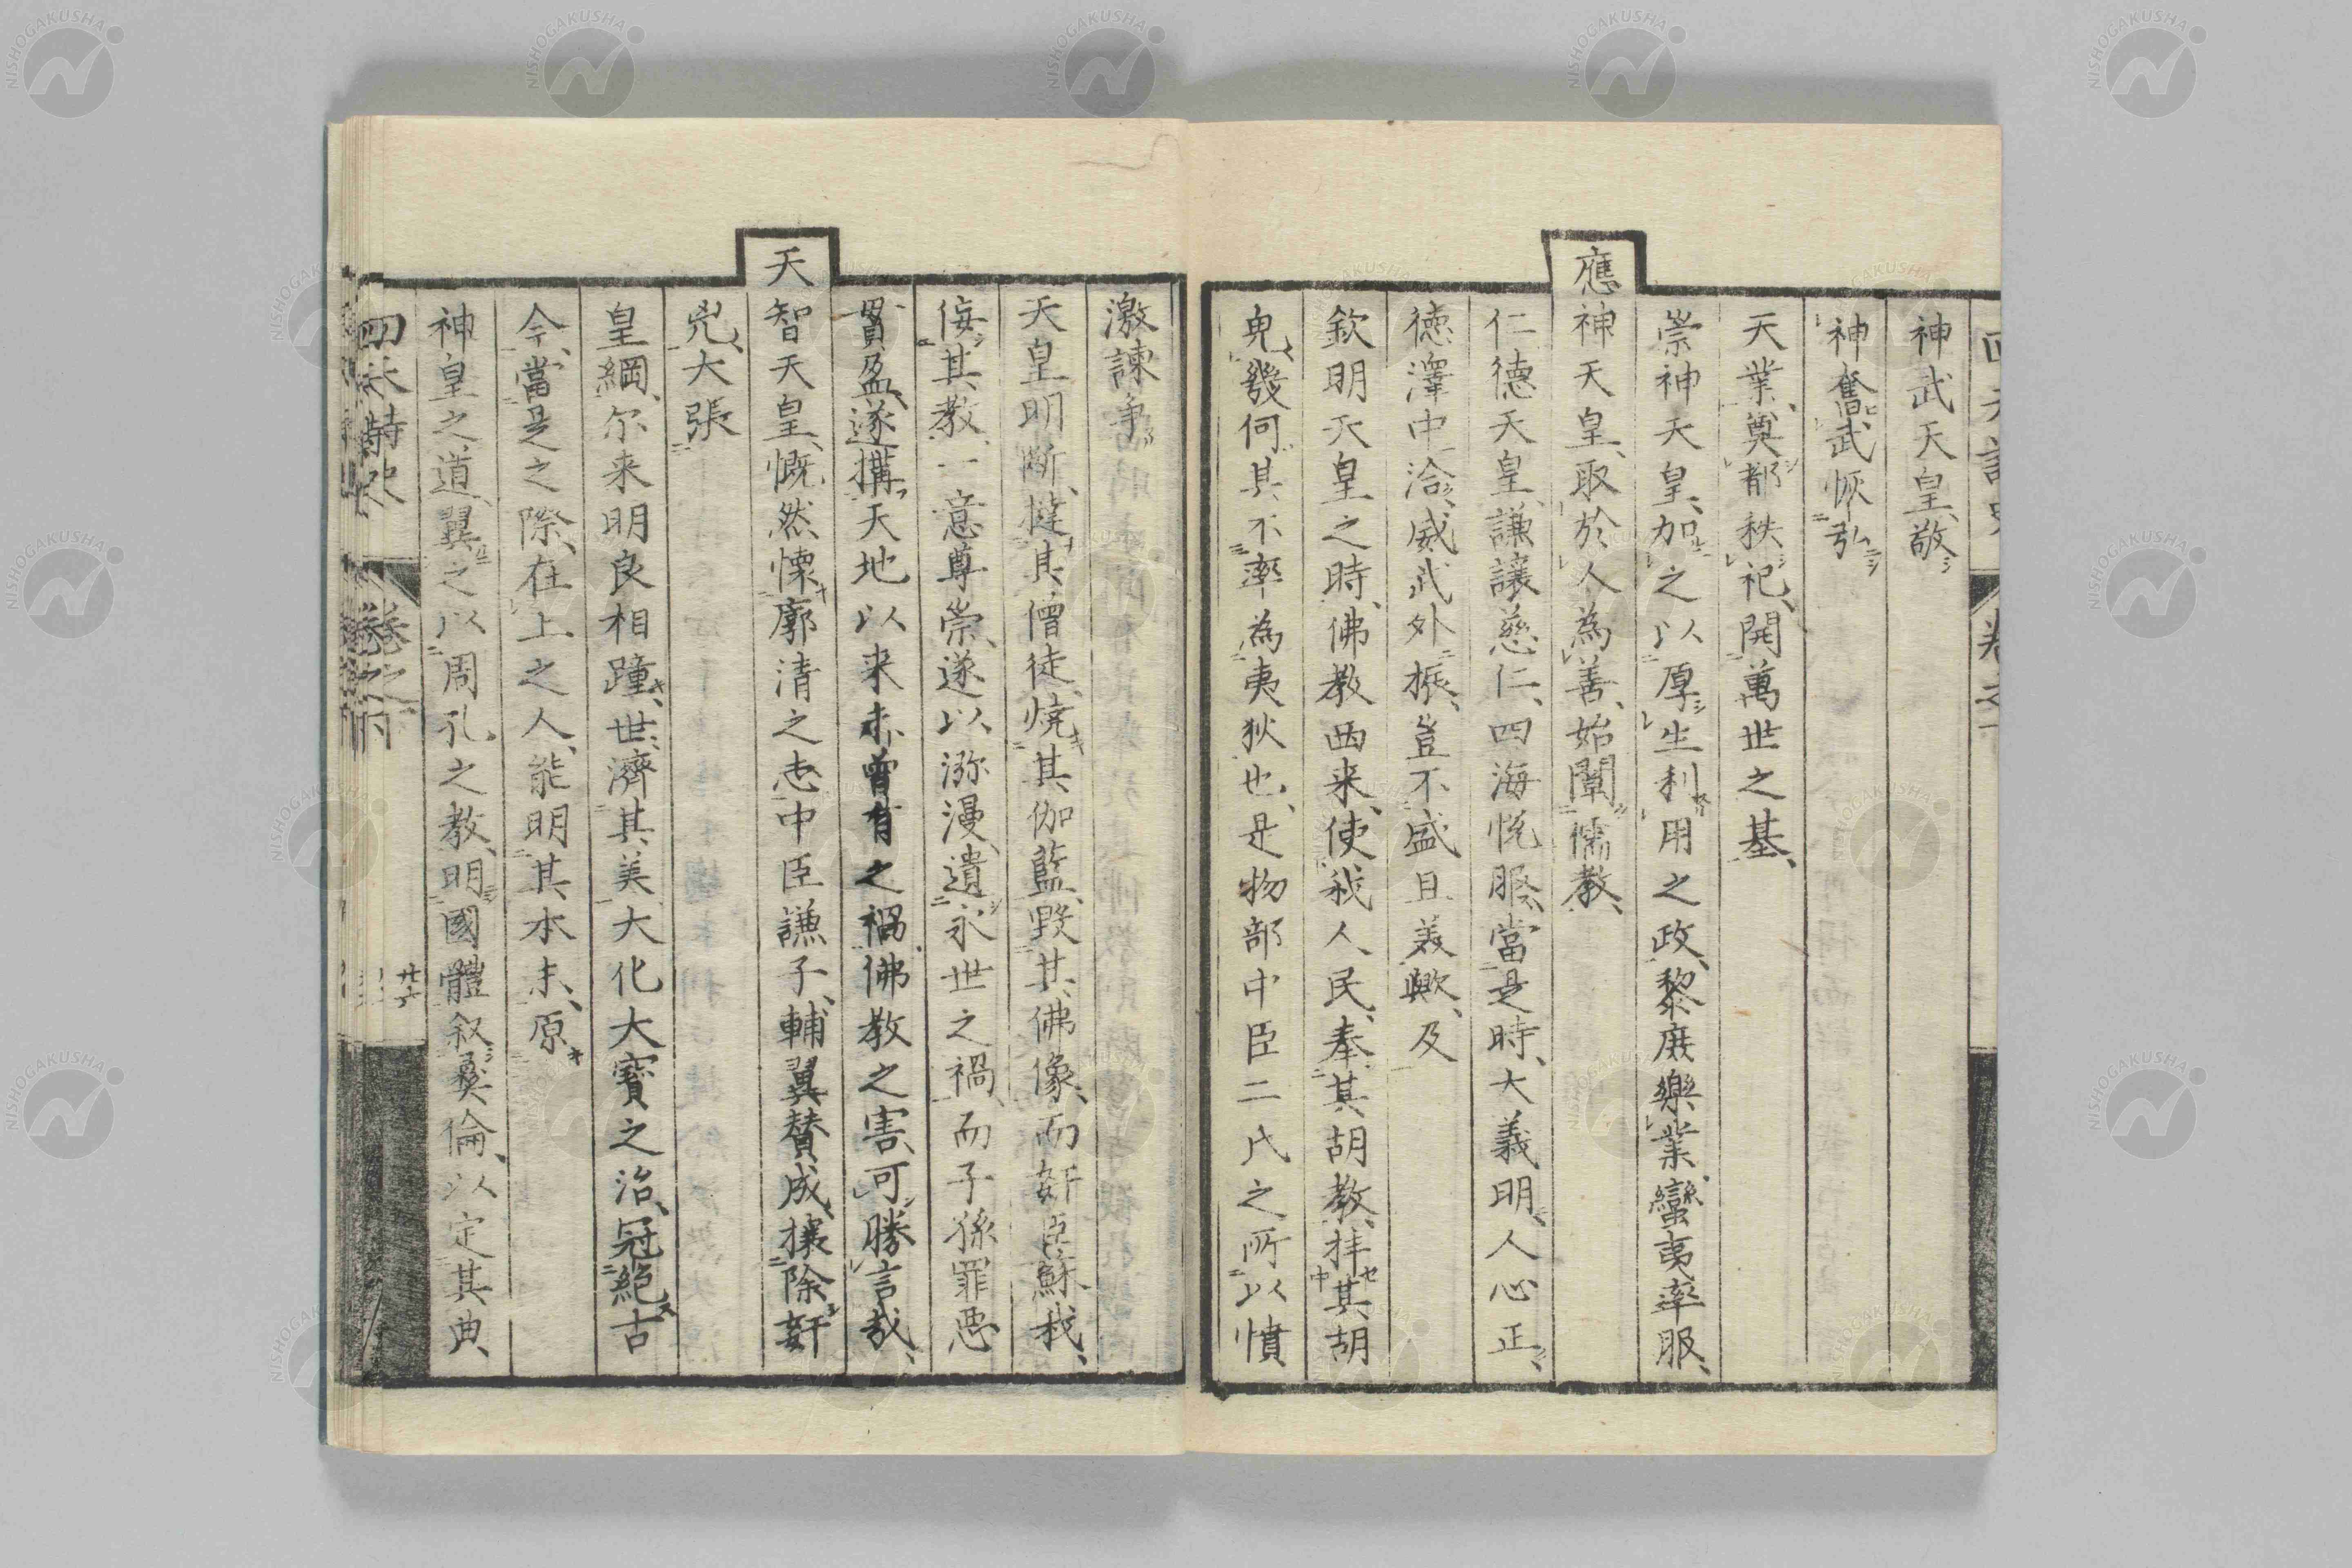 神武天皇、敬
神奮武、恢弘
天業、奠都秩祀、開萬世之基、
崇神天皇、加之以厚生利用之政、黎庶樂業、蠻夷率服、
應神天皇、取於人為善、始闡儒教、
仁德天皇、謙讓慈仁、四海悅服、當是時、大義明、人心正、
德澤中洽、威武外振、豈不盛且美歟、及
欽明天皇之時、佛教西来、使我人民、奉其胡教、拝其胡
鬼、幾何其不率為夷狄也、是物部中臣二氏之所以憤
激諫争
天皇明断、撻其僧徒、燒其伽藍、毀其佛像、而姧臣蘇我、
侮其教、一意尊崇、遂以瀰漫、遺永世之禍、而子孫罪惡
貫盈、遂搆天地以来未曾有之禍、佛教之害、可勝言哉、
天智天皇、慨然懐廓清之志、中臣謙子、輔翼賛成、攘除姧
兇、大張
皇綱、尔来明良相踵、世濟其美、大化大寶之治、冠絶古
今、當是之際、在上之人、能明其本末、原
神皇之道、翼之以周孔之教、明國體、叙彝倫、以定其典、
卷之下
廿六
NISHOGAKUSHA